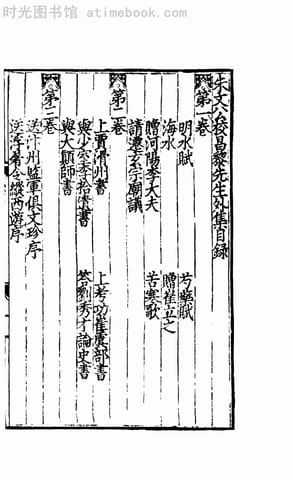 时光图书馆·atimebook.com
朱文公校昌黎先生外集目錄
第一卷
明水賦 芍藥賦
海水 贈崔立之
贈河陽李大夫 苦寒歌
請遷玄宗廟議
第二卷
上賈滑州書 上考功崔虞部書
與少室李拾遺書 答劉秀才論史書
與大顛師書
第三卷
送汴州監軍俱文珍序
送浮屠令縱西遊序